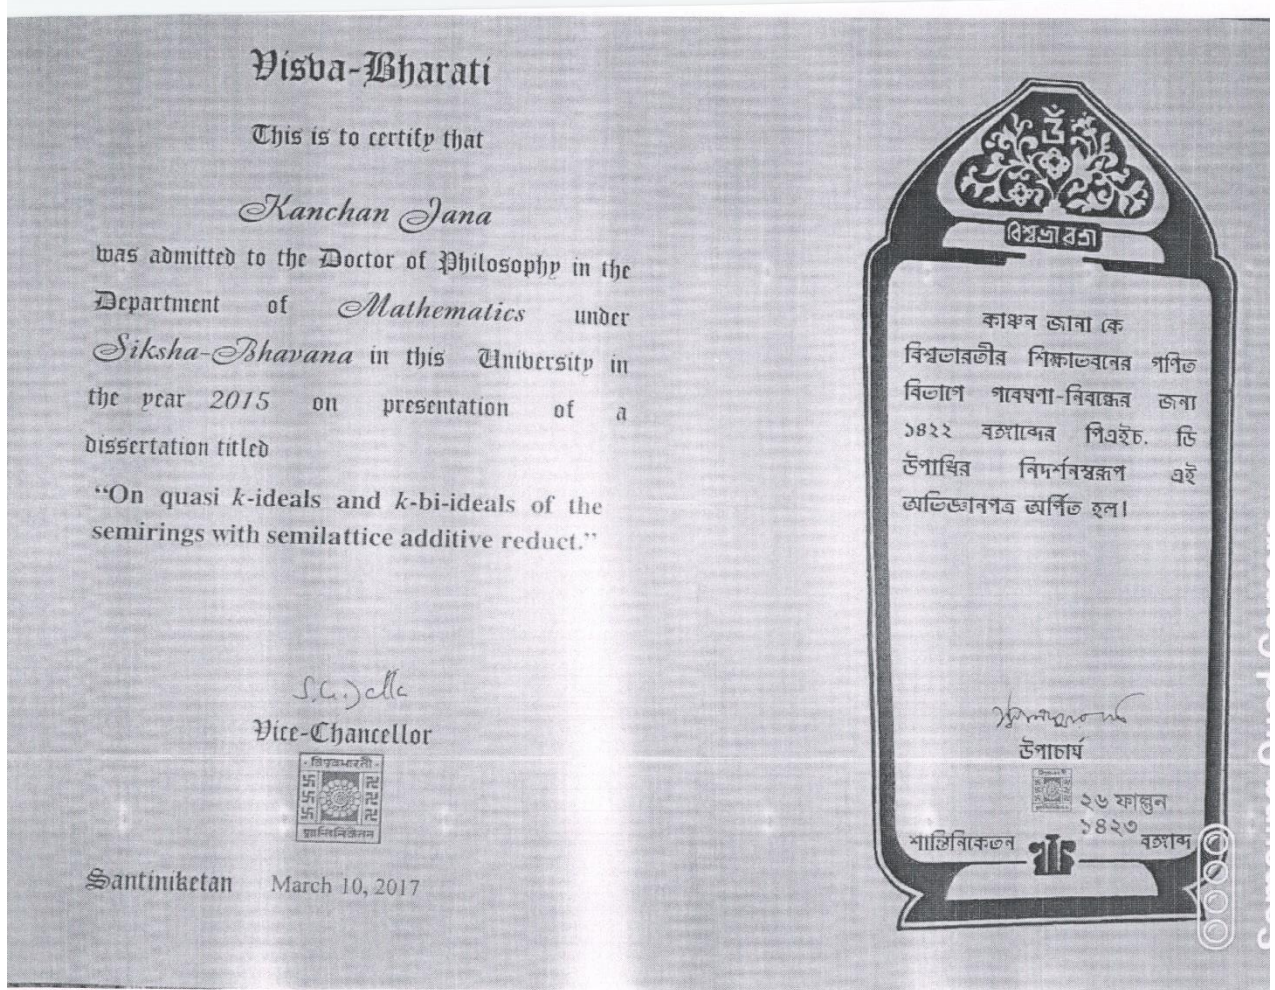 Visva-Bharati
This is to certify that
Kanchan Jana
was admitted to the Doctor of Philosophy in the
Department of Mathematics under
Siksha-Bhavana in this University in
the year 2015 on presentation of a
dissertation titled
“On quasi k-ideals and k-bi-ideals of the
semirings with semilattice additive reduct.”
Vice-Chancellor
विश्वभारती
शान्तिनिकेतन
Santiniketan March 10, 2017
ওঁ
বিশ্বভারতী
কাঞ্চন জানা কে
বিশ্বভারতীর শিক্ষাভবনের গণিত
বিভাগে গবেষণা-নিবন্ধের জন্য
১৪২২ বঙ্গাব্দের পিএইচ. ডি
উপাধির নিদর্শনস্বরূপ এই
অভিজ্ঞানপত্র অর্পিত হল।
উপাচার্য
২৬ ফাল্গুন
১৪২৩
শান্তিনিকেতন বঙ্গাব্দ
Samsung Quad Camera